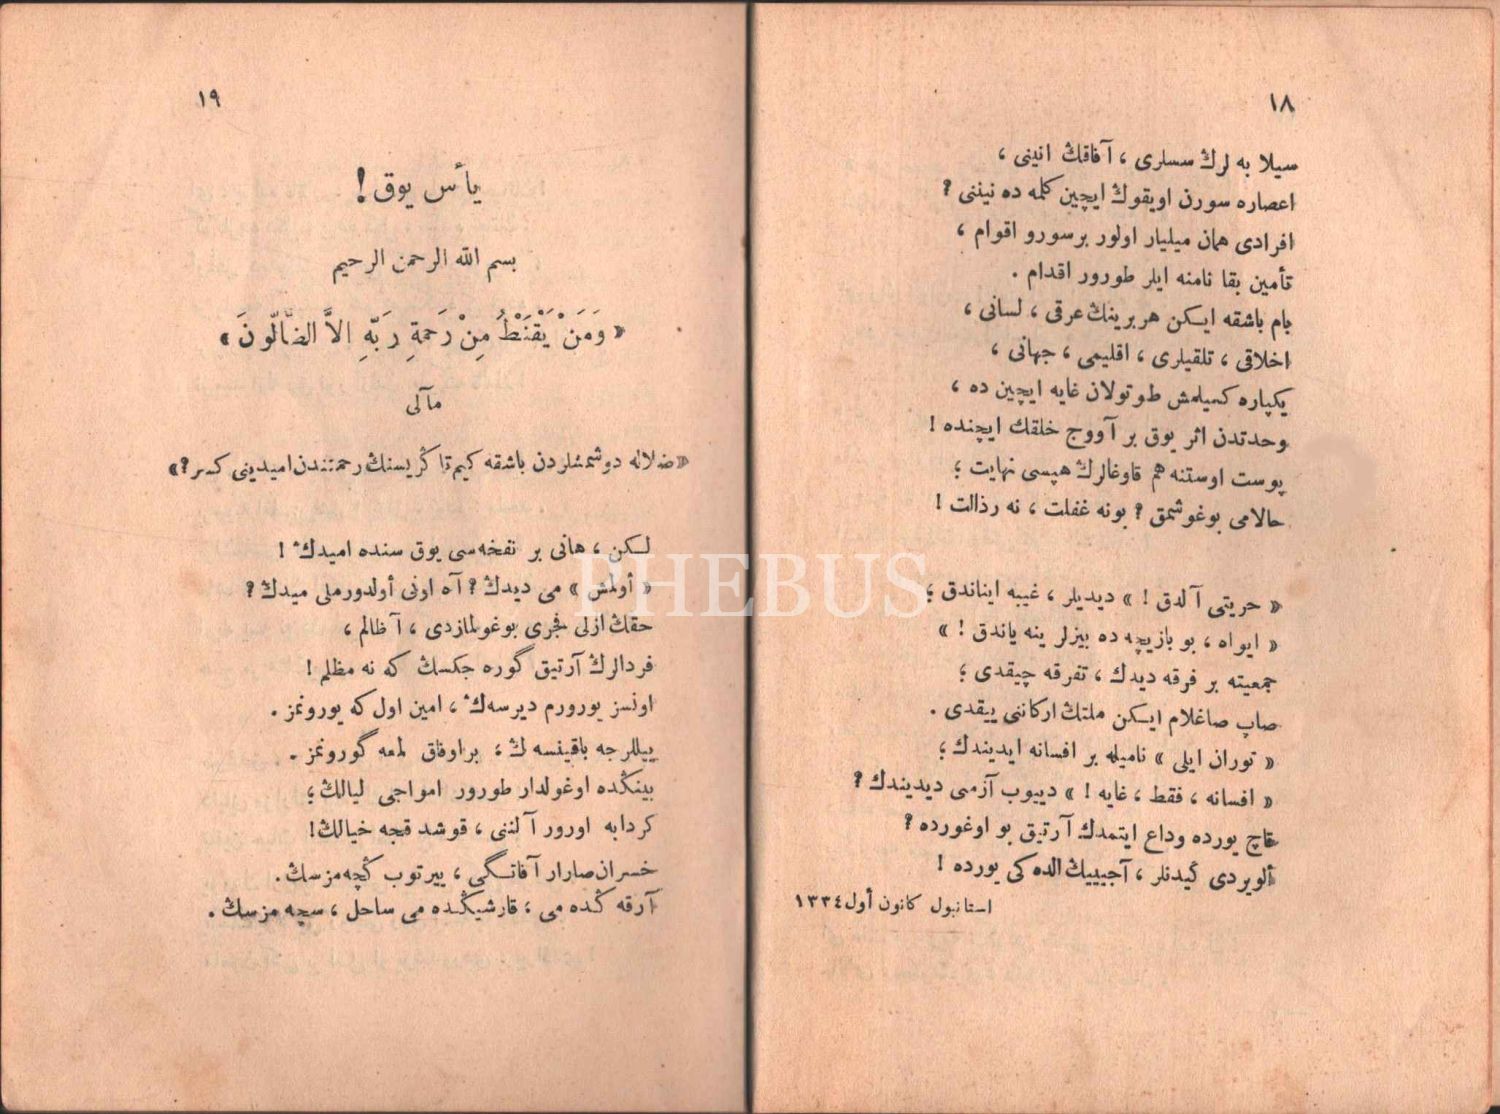 ١٨
سیلا به لرڭ سسلری ، آفاقڭ انینی ،
اعصاره سورن اویقوڭ ایچین كلمه ده نیننی ؟
افرادی همان میلیار اولور برسورو اقوام ،
تأمین بقا نامنه ایلر طورور اقدام .
بام باشقه ایسكن هربرینڭ عرقی ، لسانی ،
اخلاقی ، تلقیلری ، اقلیمی ، جهانی ،
یكپاره كسیلمش طوتولان غایه ایچین ده ،
وحدتدن اثر یوق بر آووج خلقك ایچنده !
پوست اوستنه هم قاوغالرڭ هپسی نهایت ؛
حالامی بوغوشمق ؟ بونه غفلت ، نه رذالت !
« حریتی آلدق ! » دیدیلر ، غیبه ایناندق ؛
« ایواه ، بو بازیچه ده بیزلر ینه یاندق ! »
جمعیته بر فرقه دیدك ، تفرقه چیقدی ؛
صاپ صاغلام ایسكن ملتڭ اركاننی ییقدی .
« توران ایلی » نامیله بر افسانه ایدیندك ؛
« افسانه ، فقط ، غایه ! » دییوب آزمی دیدیندك ؟
قاچ یورده وداع ایتمدك آرتیق بو اوغورده ؟
ألویردی گیدنلر ، آجیییڭ الده كی یورده !
استانبول كانون أول ١٣٣٤
١٩
یأس یوق !
بسم الله الرحمن الرحیم
« وَمَنْ يَقْنَطُ مِنْ رَحمةِ رَبِّهِ الاَّ الضالّونَ »
مآلی
« ضلاله دوشمشلردن باشقه كیم تاڭریسنڭ رحمتندن امیدینی كسر ؟ »
لكن ، هانی بر نفخه سی یوق سنده امیدك ! 
« أولمش » می دیدك ؟ آه اونی أولدورملی میدك ؟
حقڭ ازلی فجری بوغولمازدی ، آ ظالم ،
فردالرڭ آرتیق گوره جكسڭ كه نه مظلم !
اونسز یورورم دیرسه ڭ ، امین اول كه یورونمز .
ییللرجه باقینسه ڭ ، براوفاق لمعه گورونمز .
بینڭده اوغولدار طورور امواجی لیالڭ ؛
گردابه اورور آلننی ، قوشدقجه خیالڭ !
خسران صارار آفاتگی ، ییرتوب گچه مزسڭ .
آرقه ڭده می ، قارشیڭده می ساحل ، سچه مزسڭ .
PHEBUS